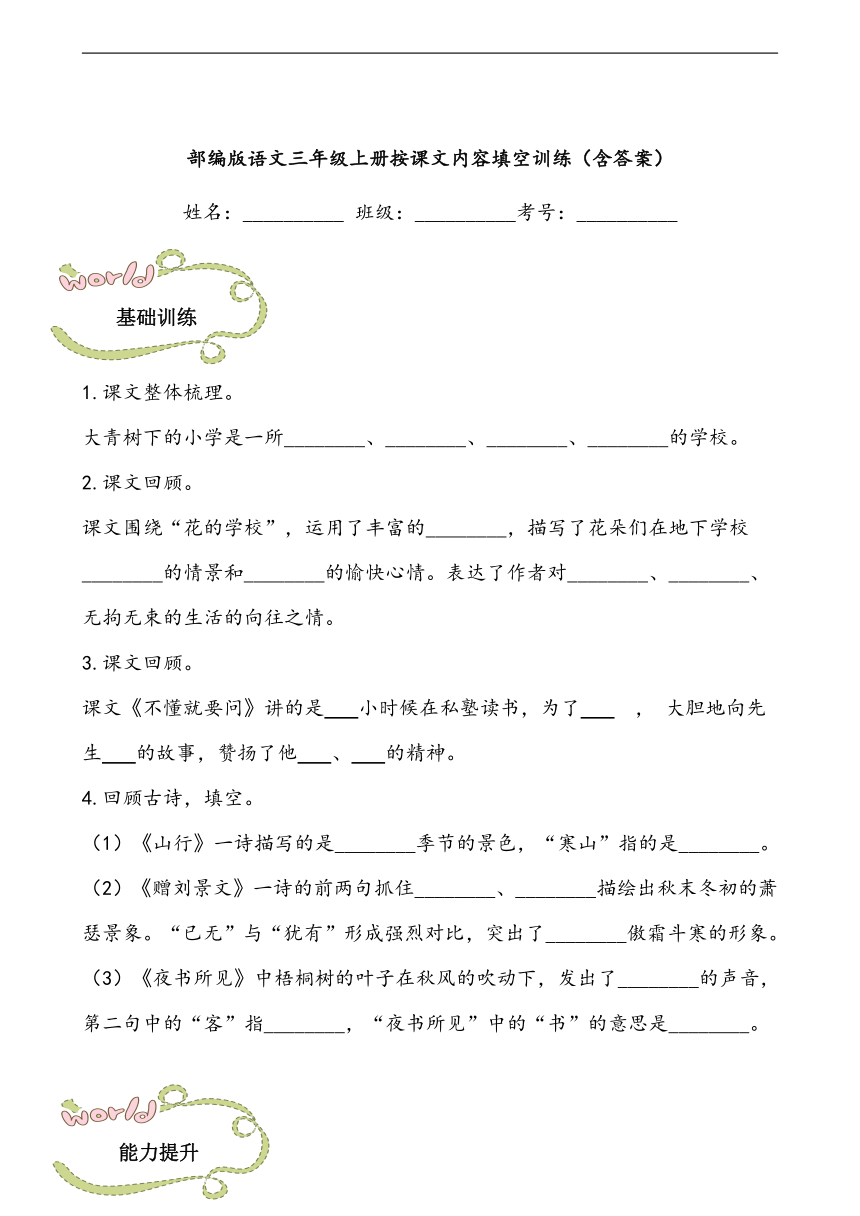 部编版语文三年级上册按课文内容填空训练（含答案）
姓名：__________ 班级：__________考号：__________
world
基础训练
1.课文整体梳理。
大青树下的小学是一所________、________、________、________的学校。
2.课文回顾。
课文围绕“花的学校”，运用了丰富的________，描写了花朵们在地下学校
________的情景和________的愉快心情。表达了作者对________、________、
无拘无束的生活的向往之情。
3.课文回顾。
课文《不懂就要问》讲的是___小时候在私塾读书，为了___ ， 大胆地向先
生___的故事，赞扬了他___、___的精神。
4.回顾古诗，填空。
（1）《山行》一诗描写的是________季节的景色，“寒山”指的是________。
（2）《赠刘景文》一诗的前两句抓住________、________描绘出秋末冬初的萧
瑟景象。“已无”与“犹有”形成强烈对比，突出了________傲霜斗寒的形象。
（3）《夜书所见》中梧桐树的叶子在秋风的吹动下，发出了________的声音，
第二句中的“客”指________，“夜书所见”中的“书”的意思是________。
world
能力提升